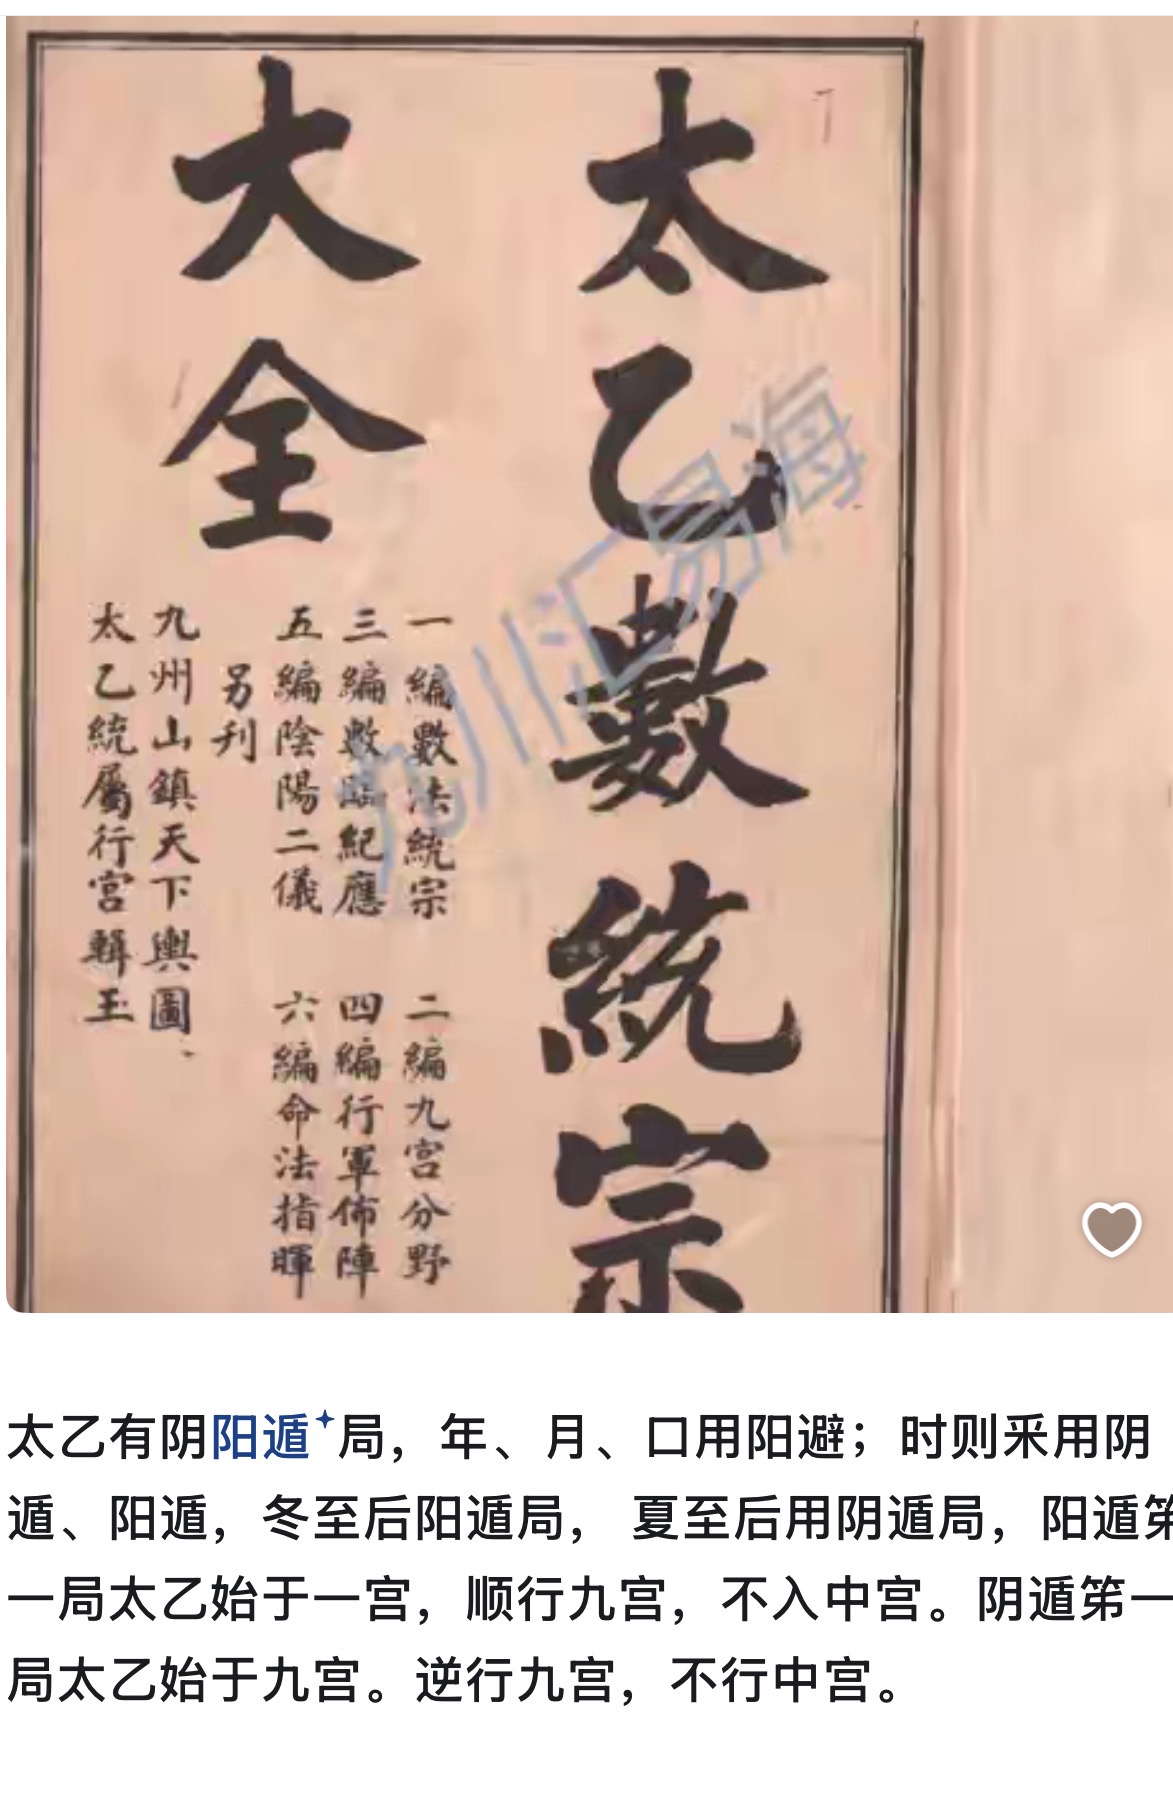 太乙數統宗
大全
一編數法統宗 二編九宫分野
三編數臨紀應 四編行軍佈陣
五編陰陽二儀 六編命法指暉
另刋
九州山鎮天下輿圖、
太乙統屬行宮輯玉
九川汇易海
太乙有阴阳遁局，年、月、口用阳避；时则釆用阴
遁、阳遁，冬至后阳遁局， 夏至后用阴遁局，阳遁笫
一局太乙始于一宫，顺行九宫，不入中宫。阴遁笫一
局太乙始于九宫。逆行九宫，不行中宫。